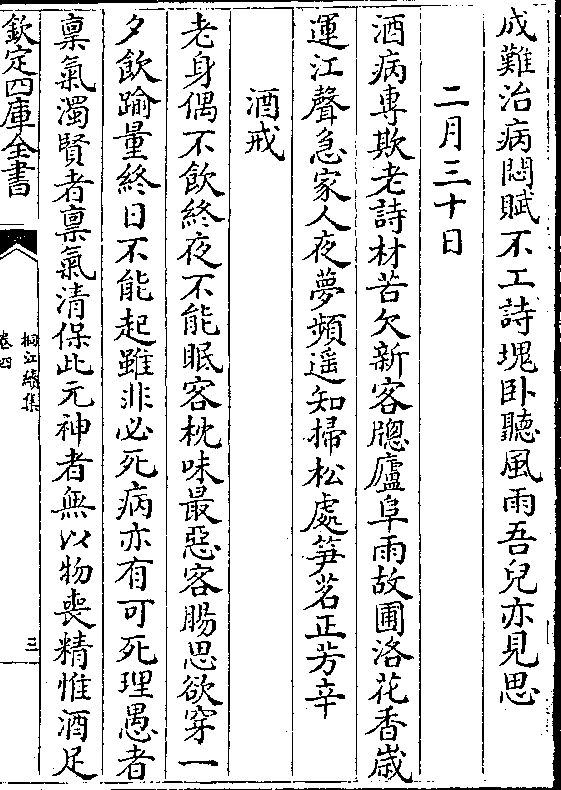 成難治病悶賦不工詩塊卧聽風雨吾兒亦見思
二月三十日
酒病専欺老詩材苦欠新客牕廬阜雨故圃洛花香嵗
運江聲急家人夜夢頻遥知掃松處笋茗正芳辛
酒戒
老身偶不飲終夜不能眠客枕味最惡客腸思欲穿一
夕飲踰量終日不能起雖非必死病亦有可死理愚者
禀氣濁賢者禀氣清保此元神者無以物喪精惟酒足
欽定四庫全書
桐江續集
卷四
三